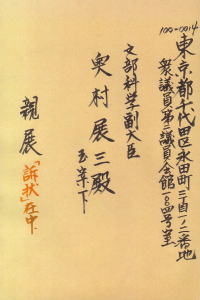 100-0014
東京都千代田区永田町二丁目一ノ二番地
衆議員第二議員会館一〇四号室
文部科学副大臣
奥村展三殿
玉案下
親展
「訴状」在中